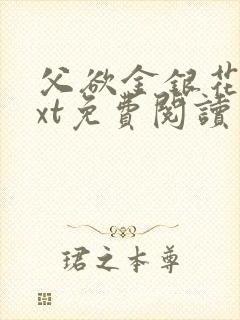 父欲金銀花
xt免費閱讀
珺之本尊